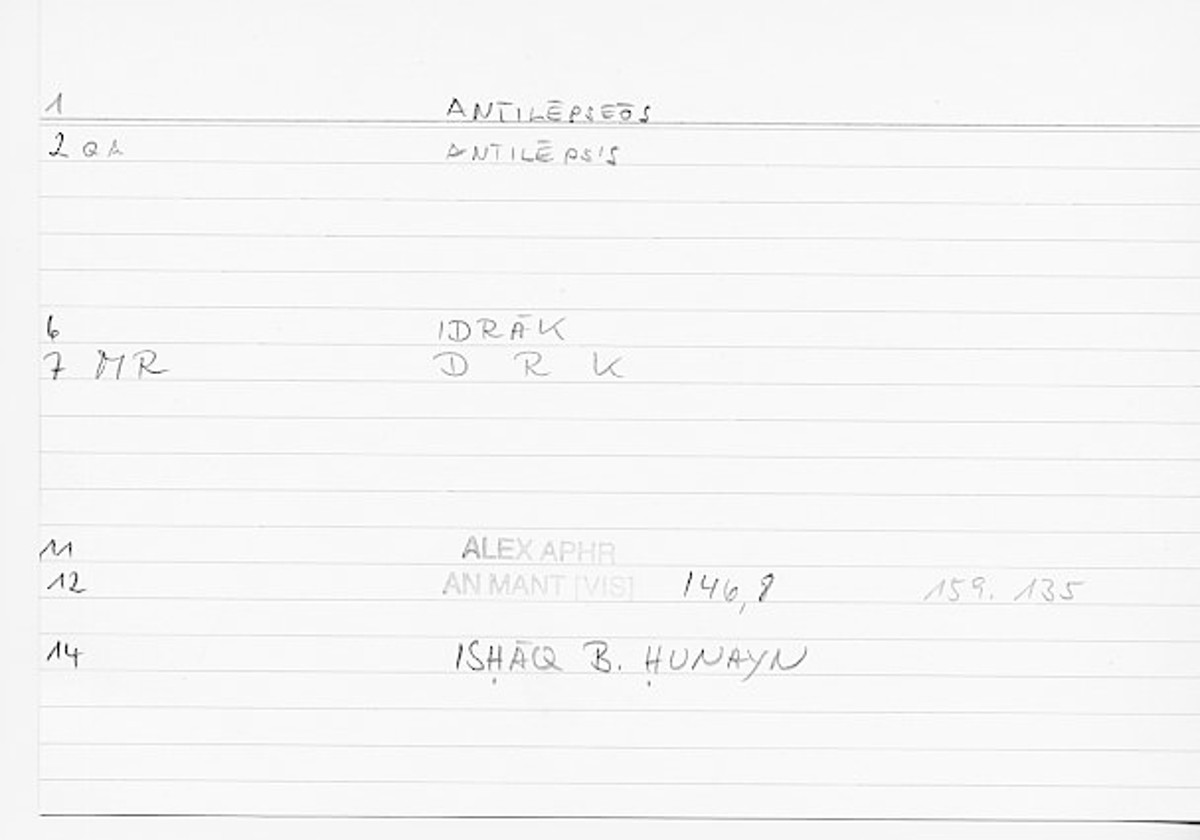 1 ANTILĒPSEŌS
2 QA ANTILĒPSIS
6 IDRĀK
7 MR D R K
11 ALEX APHR
12 AN MANT [VIS] 146,8 159. 135
14 ISḤĀQ B. ḤUNAYN